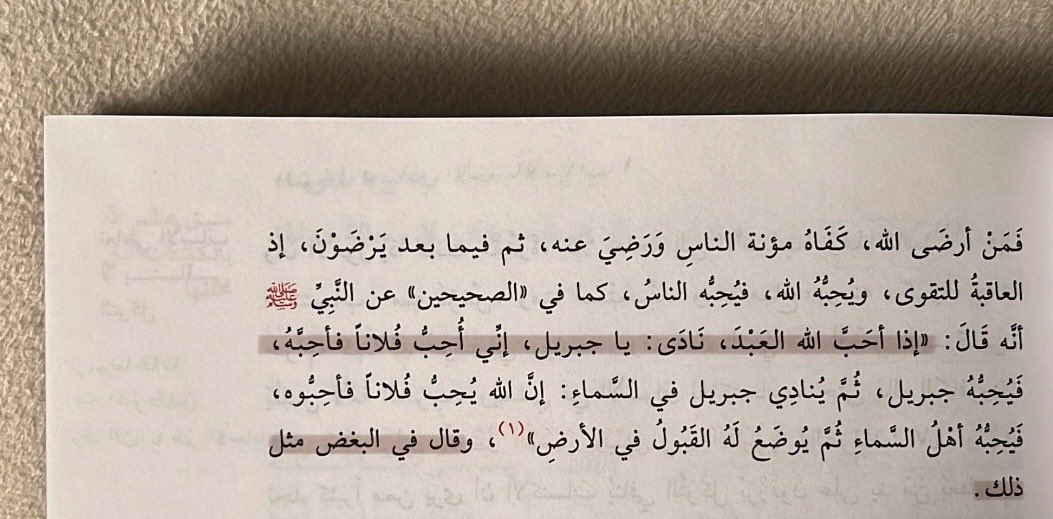 فَمَنْ أرضَى الله، كَفَاهُ مؤنة الناسِ وَرَضِيَ عنه، ثم فيما بعد يَرْضَوْنَ، إذ
العاقبةُ للتقوى، ويُحِبُّهُ الله، فيُحِبُّه الناسُ، كما في «الصحيحين» عن النَّبِيِّ ﷺ
أنَّه قَالَ: «إذا أحَبَّ الله العَبْدَ، نَادَى: يا جبريل، إنِّي أُحِبُّ فُلاناً فأحِبَّهُ،
فَيُحِبُّهُ جبريل، ثُمَّ يُنادِي جبريل في السَّماءِ: إنَّ الله يُحِبُّ فُلاناً فأحِبُّوه،
فَيُحِبُّهُ أهْلُ السَّماءِ ثُمَّ يُوضَعُ لَهُ القَبُولُ في الأرضِ»(١)، وقال في البغض مثل
ذلك.